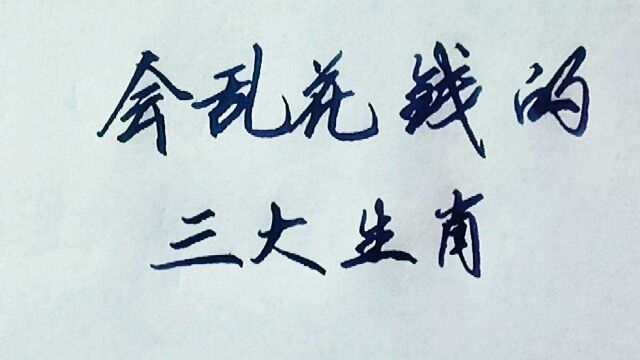 会乱花钱的
三大生肖